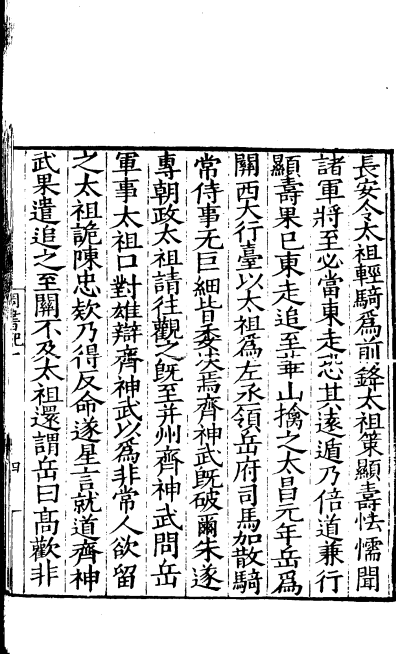 長安令太祖輕騎爲前鋒太祖策顯壽怯懦聞
諸軍將至必當東走恐其遠遁乃倍道兼行
顯壽果已東走追至華山擒之太昌元年岳爲
關西大行臺以太祖爲左丞領岳府司馬加散騎
常侍事无巨細皆委決焉齊神武既破爾朱遂
專朝政太祖請往觀之既至并州齊神武問岳
軍事太祖口對雄辯齊神武以爲非常人欲留
之太祖詭陳忠款乃得反命遂星言就道齊神
武果遣追之至關不及太祖還謂岳曰高歡非
周書紀一
四